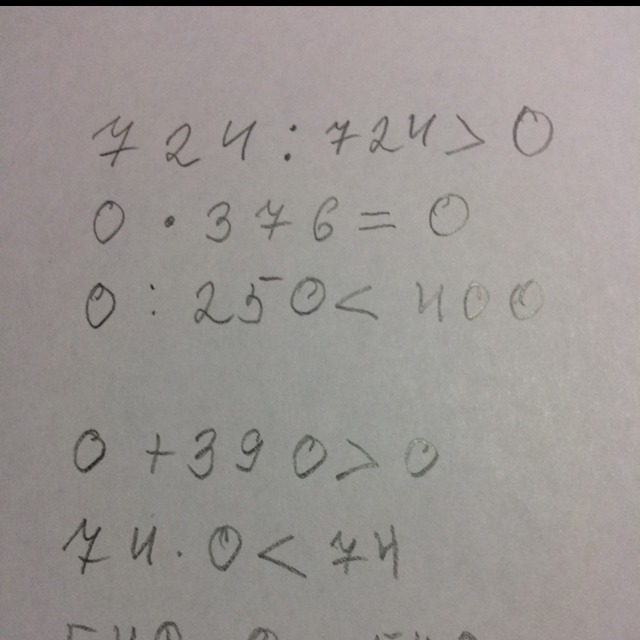 724 : 724 > 0
0 · 376 = 0
0 : 250 < 400
0 + 390 > 0
74 · 0 < 74